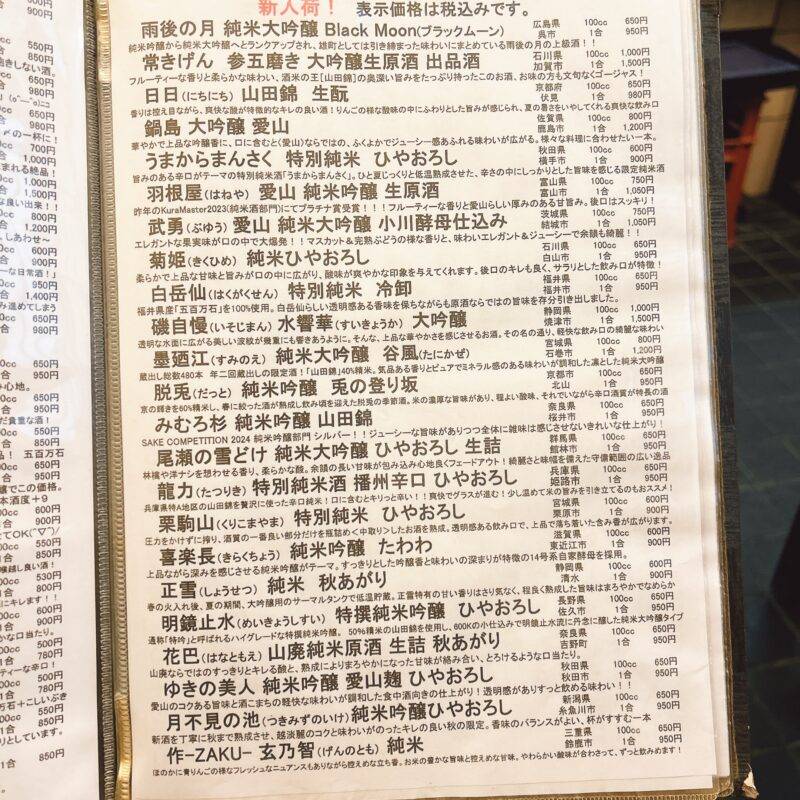 新入荷！ 表示価格は税込みです。
雨後の月 純米大吟醸 Black Moon(ブラックムーン) 広島県 100cc 650円
呉市 1合 950円
純米吟醸から純米大吟醸へとランクアップされ、雄町としては引き締まった味わいにまとめている雨後の月の上級酒！！
常きげん 参五磨き 大吟醸生原酒 出品酒 石川県 100cc 1,000円
加賀市 1合 1,500円
フルーティーな香りと柔らかな味わい、酒米の王[山田錦]の奥深い旨みをたっぷり持ったこのお酒、お味の方も文句なくゴージャス！
日日(にちにち) 山田錦 生酛 京都府 100cc 650円
伏見 1合 980円
香りは控え目ながら、爽快な酸が特徴的なキレの良い酒！りんごの様な酸味の中にふわりとした旨みが感じられ、夏の暑さをいやしてくれる爽快な飲み口
鍋島 大吟醸 愛山 佐賀県 100cc 800円
鹿島市 1合 1,200円
華やかで上品な吟醸香に、口に含むと(愛山)ならではの、ふくよかでジューシー感あふれる味わいが広がる。様々な料理に合わせたい一本。
うまからまんさく 特別純米 ひやおろし 秋田県 100cc 600円
横手市 1合 900円
旨みのある辛口がテーマの特別純米酒「うまからまんさく」。ひと夏じっくりと低温熟成させた、辛さの中にしっかりとした旨みを感じる限定純米酒
羽根屋(はねや) 愛山 純米吟醸 生原酒 富山県 100cc 750円
富山市 1合 1,050円
昨年のKuraMaster2023(純米酒部門)にてプラチナ賞受賞！！！フルーティーな香りと愛山らしい厚みのある甘旨み。後口はスッキリ！
武勇(ぶゆう) 愛山 純米大吟醸 小川酵母仕込み 茨城県 100cc 750円
結城市 1合 1,050円
エレガントな果実味が口の中で大爆発！！マスカット&完熟ぶどうの様な香りと、味わいエレガント&ジューシーで余韻も綺麗！！
菊姫(きくひめ) 純米ひやおろし 石川県 100cc 650円
白山市 1合 950円
柔らかで上品な甘味と旨みが口の中に広がり、酸味が爽やかな印象を与えてくれます。後口のキレも良く、サラリとした飲み口が特徴！
白岳仙(はくがくせん) 特別純米 冷卸 福井県 100cc 650円
福井市 1合 950円
福井県産「五百万石」を100%使用。白岳仙らしい透明感ある香味を保ちながらも原酒ならではの旨味を存分引き出しました。
磯自慢(いそじまん) 水響華(すいきょうか) 大吟醸 静岡県 100cc 1,000円
焼津市 1合 1,500円
透明な水面に広がる美しい波紋が幾重にも響きあうように。そんな、上品な華やかさを感じさせるお酒。その名の通り、軽快な飲む口の綺麗な味わい
墨廼江(すみのえ) 純米大吟醸 谷風(たにかぜ) 宮城県 100cc 800円
石巻市 1合 1,200円
蔵出し総数480本 年二回蔵出しの限定酒！「山田錦」40%精米。気品ある香りとピュアでミネラル感のある味わいが調和した凛とした純米大吟醸
脱兎(だっと) 純米吟醸 兎の登り坂 京都市 100cc 650円
北山 1合 950円
京の輝きを60%精米し、春に絞った酒が熟成し飲み頃を迎えた脱兎の季節酒。米の濃厚な旨味があり、程よい酸味、それでいながら辛口酒質が特長の酒
みむろ杉 純米吟醸 山田錦 奈良県 100cc 650円
桜井市 1合 950円
SAKE COMPETITION 2024 純米吟醸部門 シルバー！！ジューシーな旨味がありつつ全体に雑味は感じさせないきれいな仕上がり！
尾瀬の雪どけ 純米大吟醸 ひやおろし 生詰 群馬県 100cc 650円
館林市 1合 950円
林檎や洋ナシを想わせる香り、柔らかな酸。余韻の長い甘味が包み込み心地良くフェードアウト！綺麗さと味幅を備えた守備範囲の広い逸品
龍力(たつりき) 特別純米酒 播州辛口 ひやおろし 兵庫県 100cc 650円
姫路市 1合 950円
兵庫県特A地区の山田錦を贅沢に使った辛口純米！口に含むとキリっと辛い！！爽快でグラスが進む！少し温めて米の旨みを引き立てるのもおススメ！
栗駒山(くりこまやま) 特別純米 ひやおろし 宮城県 100cc 600円
栗原市 1合 900円
圧力をかけずに搾り、酒質の一番良い部分だけを瓶詰め＜中取り＞したお酒を熟成。透明感ある飲み口で、上品で落ち着いた含み香が広がります。
喜楽長(きらくちょう) 純米吟醸 たわわ 滋賀県 100cc 650円
東近江市 1合 950円
上品ながら深みを感じさせる純米吟醸がテーマ。すっきりとした吟醸香と味わいの深まりが特徴の14号系自家酵母を採用。
正雪(しょうせつ) 純米 秋あがり 静岡県 100cc 600円
清水 1合 900円
春の火入れ後、夏の期間、大吟醸用のサーマルタンクで低温貯蔵。正雪特有の甘い香りはさり気なく、程良く熟成した旨味はまろやかでなめらか
明鏡止水(めいきょうしすい) 特撰純米吟醸 ひやおろし 長野県 100cc 650円
佐久市 1合 950円
通称「特吟」と呼ばれるハイグレードな特撰純米吟醸。 50%精米の山田錦を使用し、600Kの小仕込みで明鏡止水流に丹念に醸した純米大吟醸タイプ
花巴(はなともえ) 山廃純米原酒 生詰 秋あがり 奈良県 100cc 650円
吉野町 1合 950円
山廃ならではのすっきりとキレる酸と、熟成によりまろやかになった甘味が絡み合い、とろけるような口当たり。
ゆきの美人 純米吟醸 愛山麹 ひやおろし 秋田県 100cc 650円
秋田市 1合 950円
愛山のコクある旨味と酒こまちの軽快な味わいが調和した食中酒向きの仕上がり！透明感がありすっと飲める味わい！！
月不見の池(つきみずのいけ) 純米吟醸ひやおろし 新潟県 100cc 650円
糸魚川市 1合 950円
新酒を丁寧に秋まで熟成させ、越淡麗のコクと味わいがのったキレの良い秋の限定。香味のバランスがよい、杯がすすむ一本
作-ZAKU- 玄乃智(げんのとも) 純米 三重県 100cc 650円
鈴鹿市 1合 950円
ほのかに青りんごの様なフレッシュなニュアンスもありながら控えめな立ち香。お米の豊かな旨味と控えめな甘味。やわらかい酸味が合わさって、ずっと飲めます！